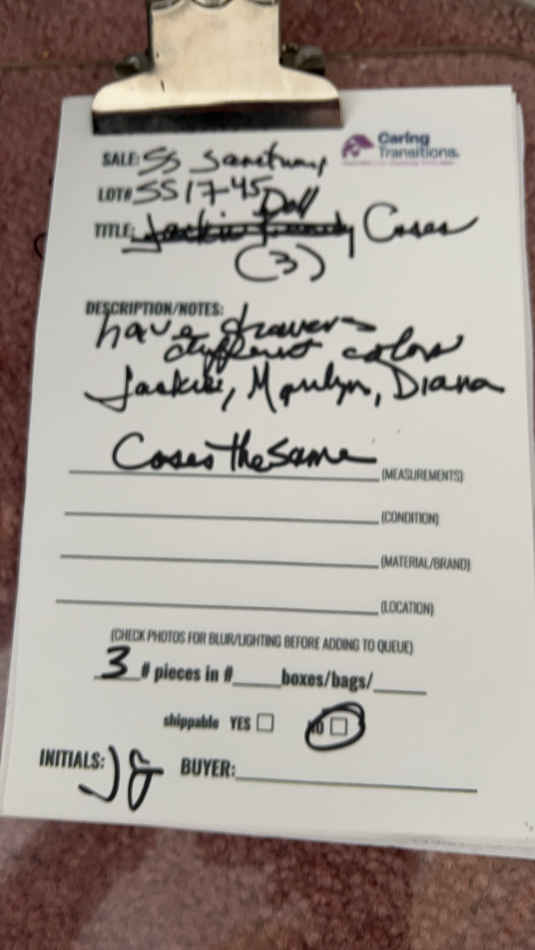 Caring
Transitions.
SALE: SS Sanctuary
LOT# SS17-45
Doll
TITLE: Cases
(3)
DESCRIPTION/NOTES:
have drawers
different colors
Jackie, Marilyn, Diana
Cases the same
(MEASUREMENTS)
(CONDITION)
(MATERIAL/BRAND)
(LOCATION)
(CHECK PHOTOS FOR BLUR/LIGHTING BEFORE ADDING TO QUEUE)
3 # pieces in # boxes/bags/
shippable YES NO
INITIALS: JG BUYER: